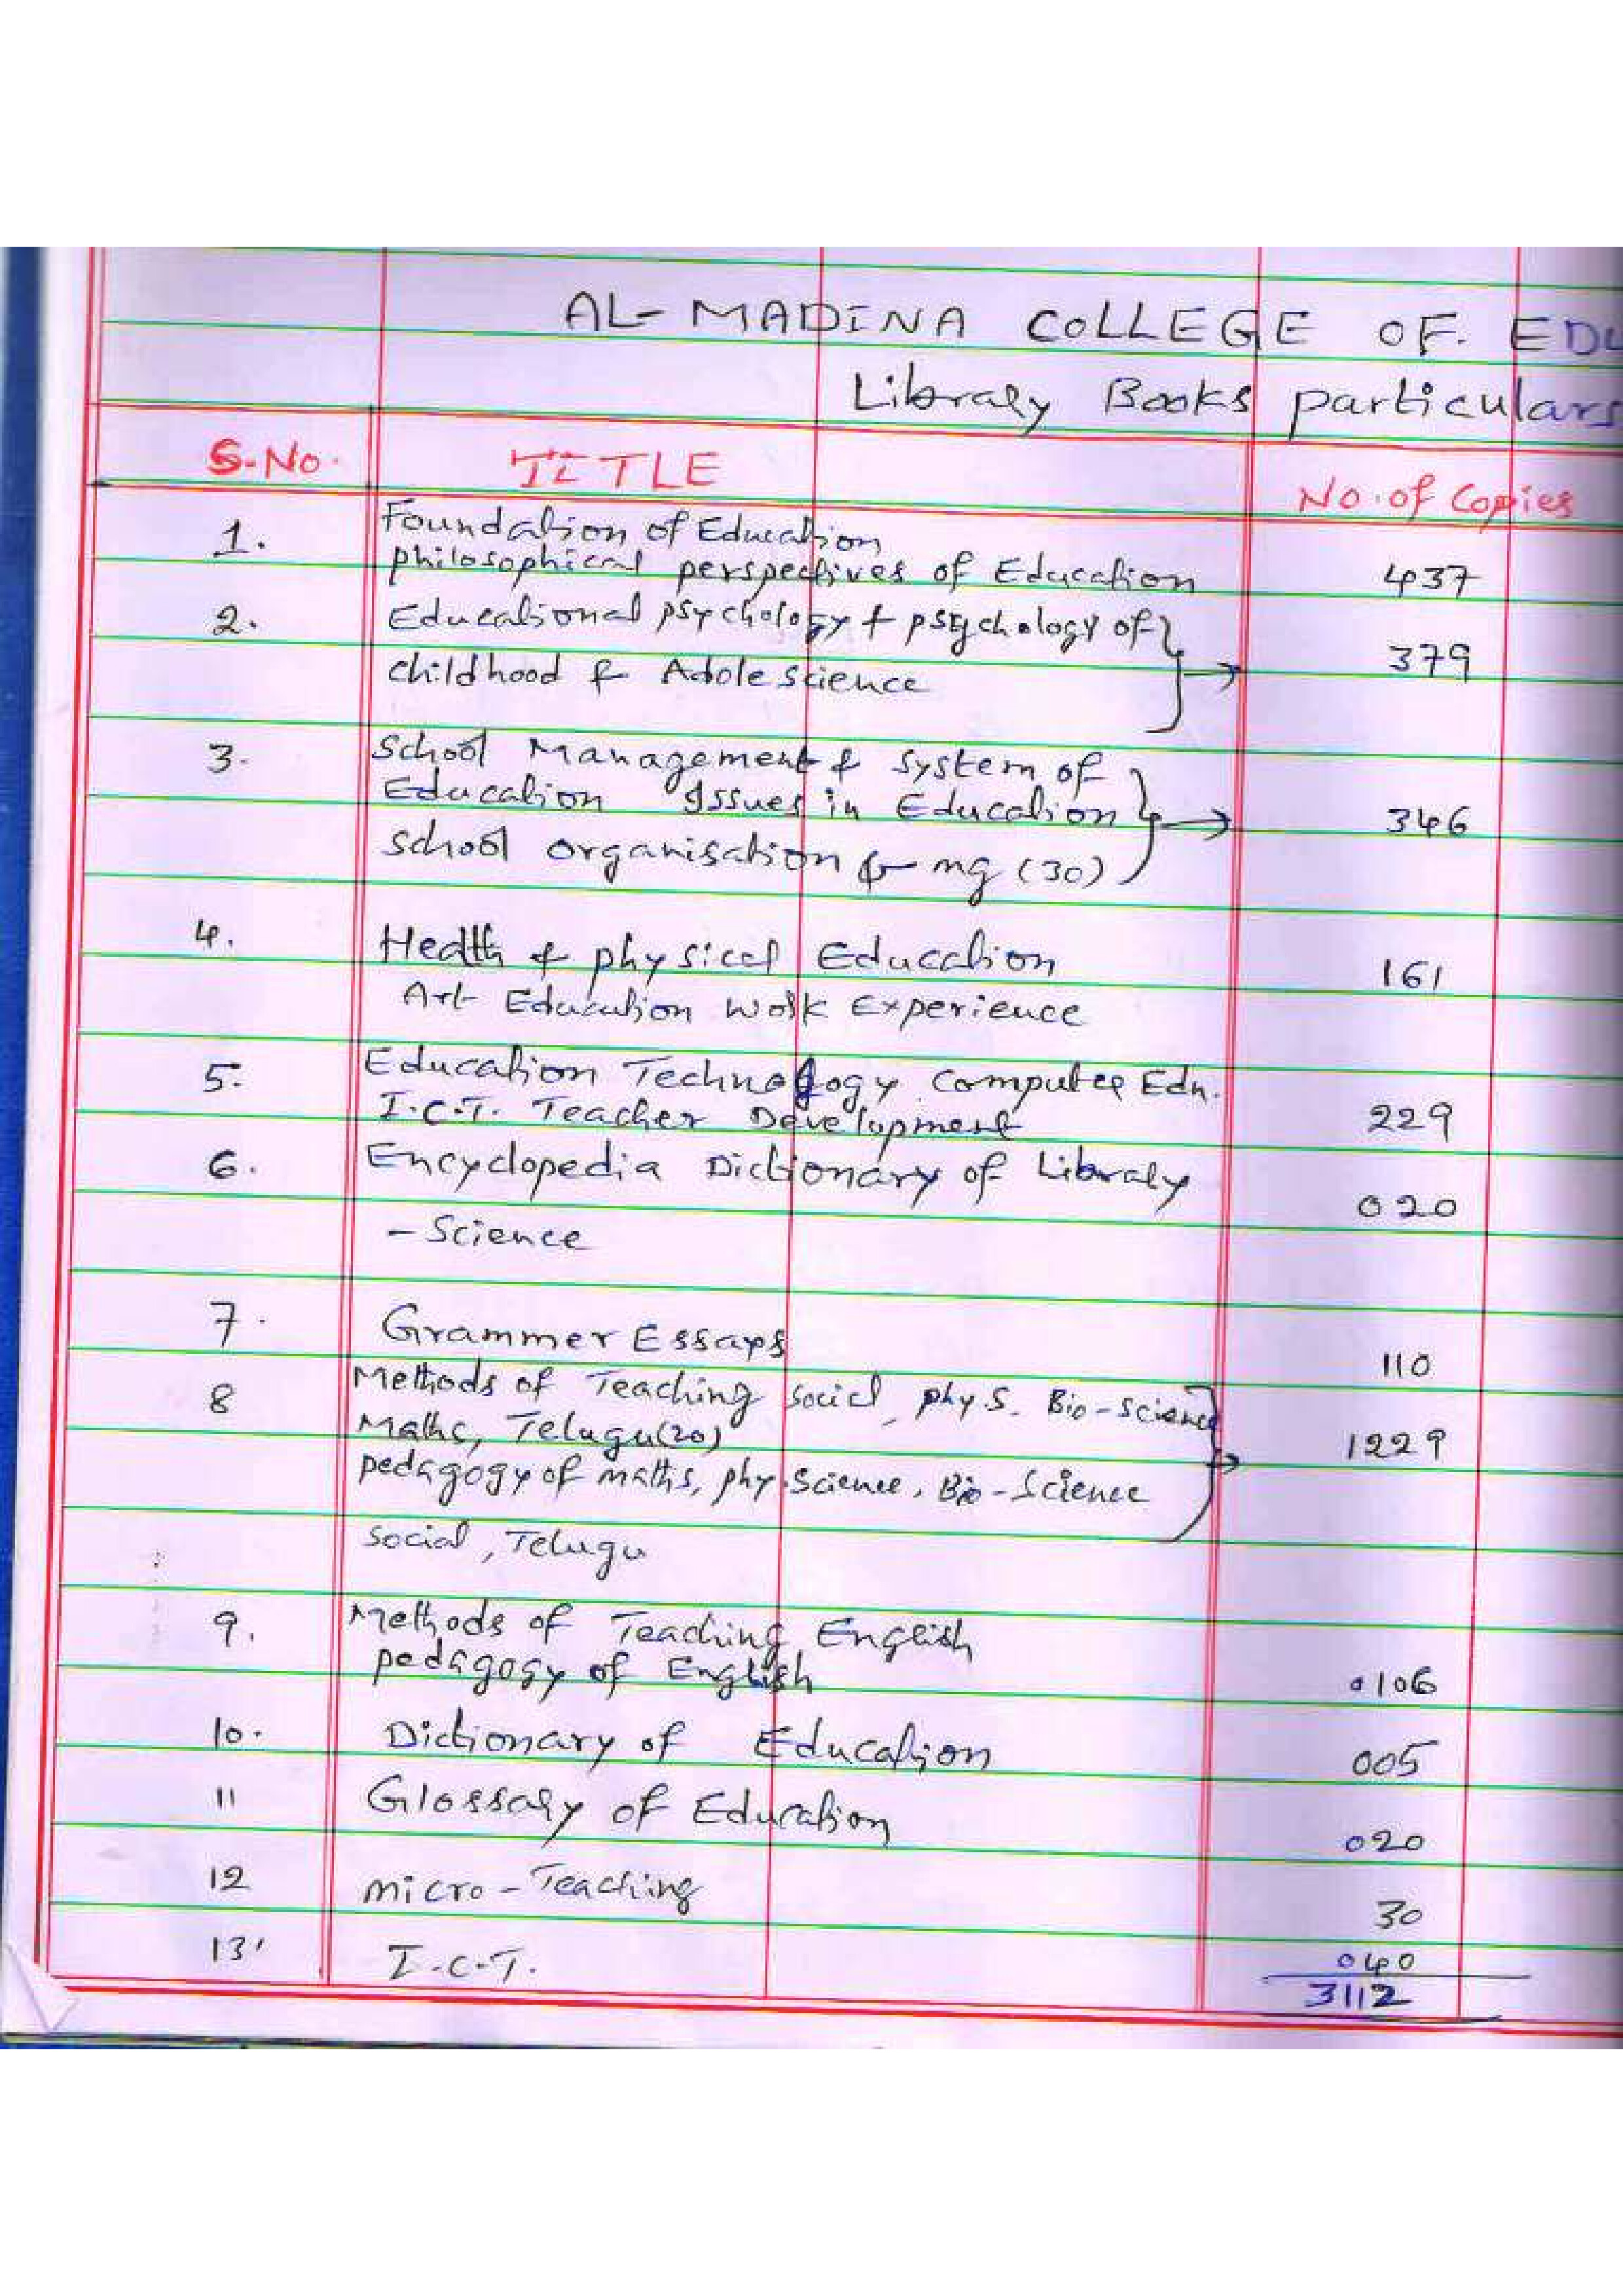 AL-MADINA COLLEGE OF. EDU
Library Books particulars
S.No. TITLE No. of Copies
1. Foundation of Education
philosophical perspectives of Education 437
2. Educational psychology & psychology of
childhood & Adolescience 379
3. School Management & System of
Education Issues in Education 346
School organisation & mg (30)
4. Health & physical Education 161
Art Education Work Experience
5. Education Technology Computer Edn.
I.C.T. Teacher Development 229
6. Encyclopedia Dictionary of Library 020
- Science
7. Grammer Essays 110
8 Methods of Teaching social, phy.S. Bio-Science
Maths, Telugu(20) 1229
pedagogy of maths, phy.Science, Bio-Science
social, Telugu
9. Methods of Teaching English
pedagogy of English 0106
10. Dictionary of Education 005
11 Glossary of Education 020
12 micro-Teaching 30
13. I.C.T. 040
3112